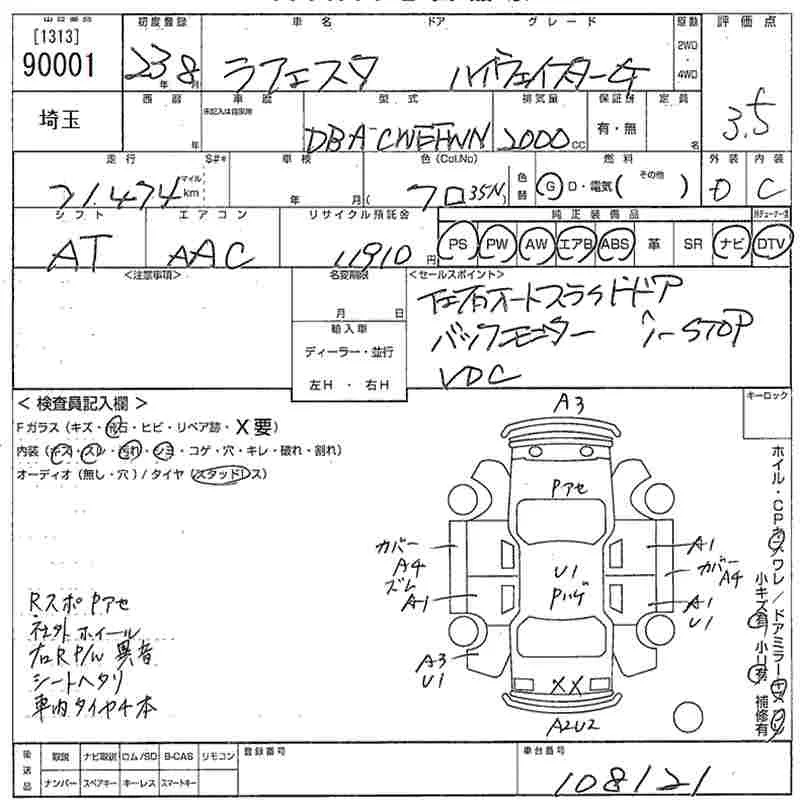 出品番号 初度登録 車名 ドア グレード 駆動 評価点
[1313]
90001 23年8月 ラフェスタ ハイウェイスター 2WD・4WD 3.5
埼玉 西暦 年 車歴 未記入は自家用 型式 排気量 保証書 定員
DBA-CWEFWN 2000cc 有・無 名
走行 S#* 車検 色(Col.No) 色替 燃料 外装 内装
71.474 マイル km 年 月 クロ(35N) G D・電気( その他 ) D C
シフト エアコン リサイクル預託金 純正装備品
AT AAC 11910円 PS PW AW エアB ABS 革 SR ナビ DTV
<注意事項> 名変期限 <セールスポイント>
月 日 左右オートスライドドア
輸入車 バックモニター i-STOP
ディーラー・並行 VDC
左H・右H
<検査員記入欄> キーロック
Fガラス(キズ・飛石・ヒビ・リペア跡・X要)
内装(キズ・スレ・汚れ・シミ・コゲ・穴・キレ・破れ・割れ)
オーディオ(無し・穴)/タイヤ(スタッドレス)
A3
Pアセ
カバー A4
ズレ
A1
U1
Pハゲ
A1
カバー A4
A1
U1
A3
U1
XX
A2U2
ホイル・CPキズ・ワレ/ドアミラーキズ
小キズ有 小U有 補修有
RスポPアセ
社外ホイール
右RP/W異音
シートヘタリ
車内タイヤ4本
後送品 取説 ナビ取説 ロム/SD B-CAS リモコン 登録番号 車台番号
ナンバー スペアキー キーレス スマートキー 108121